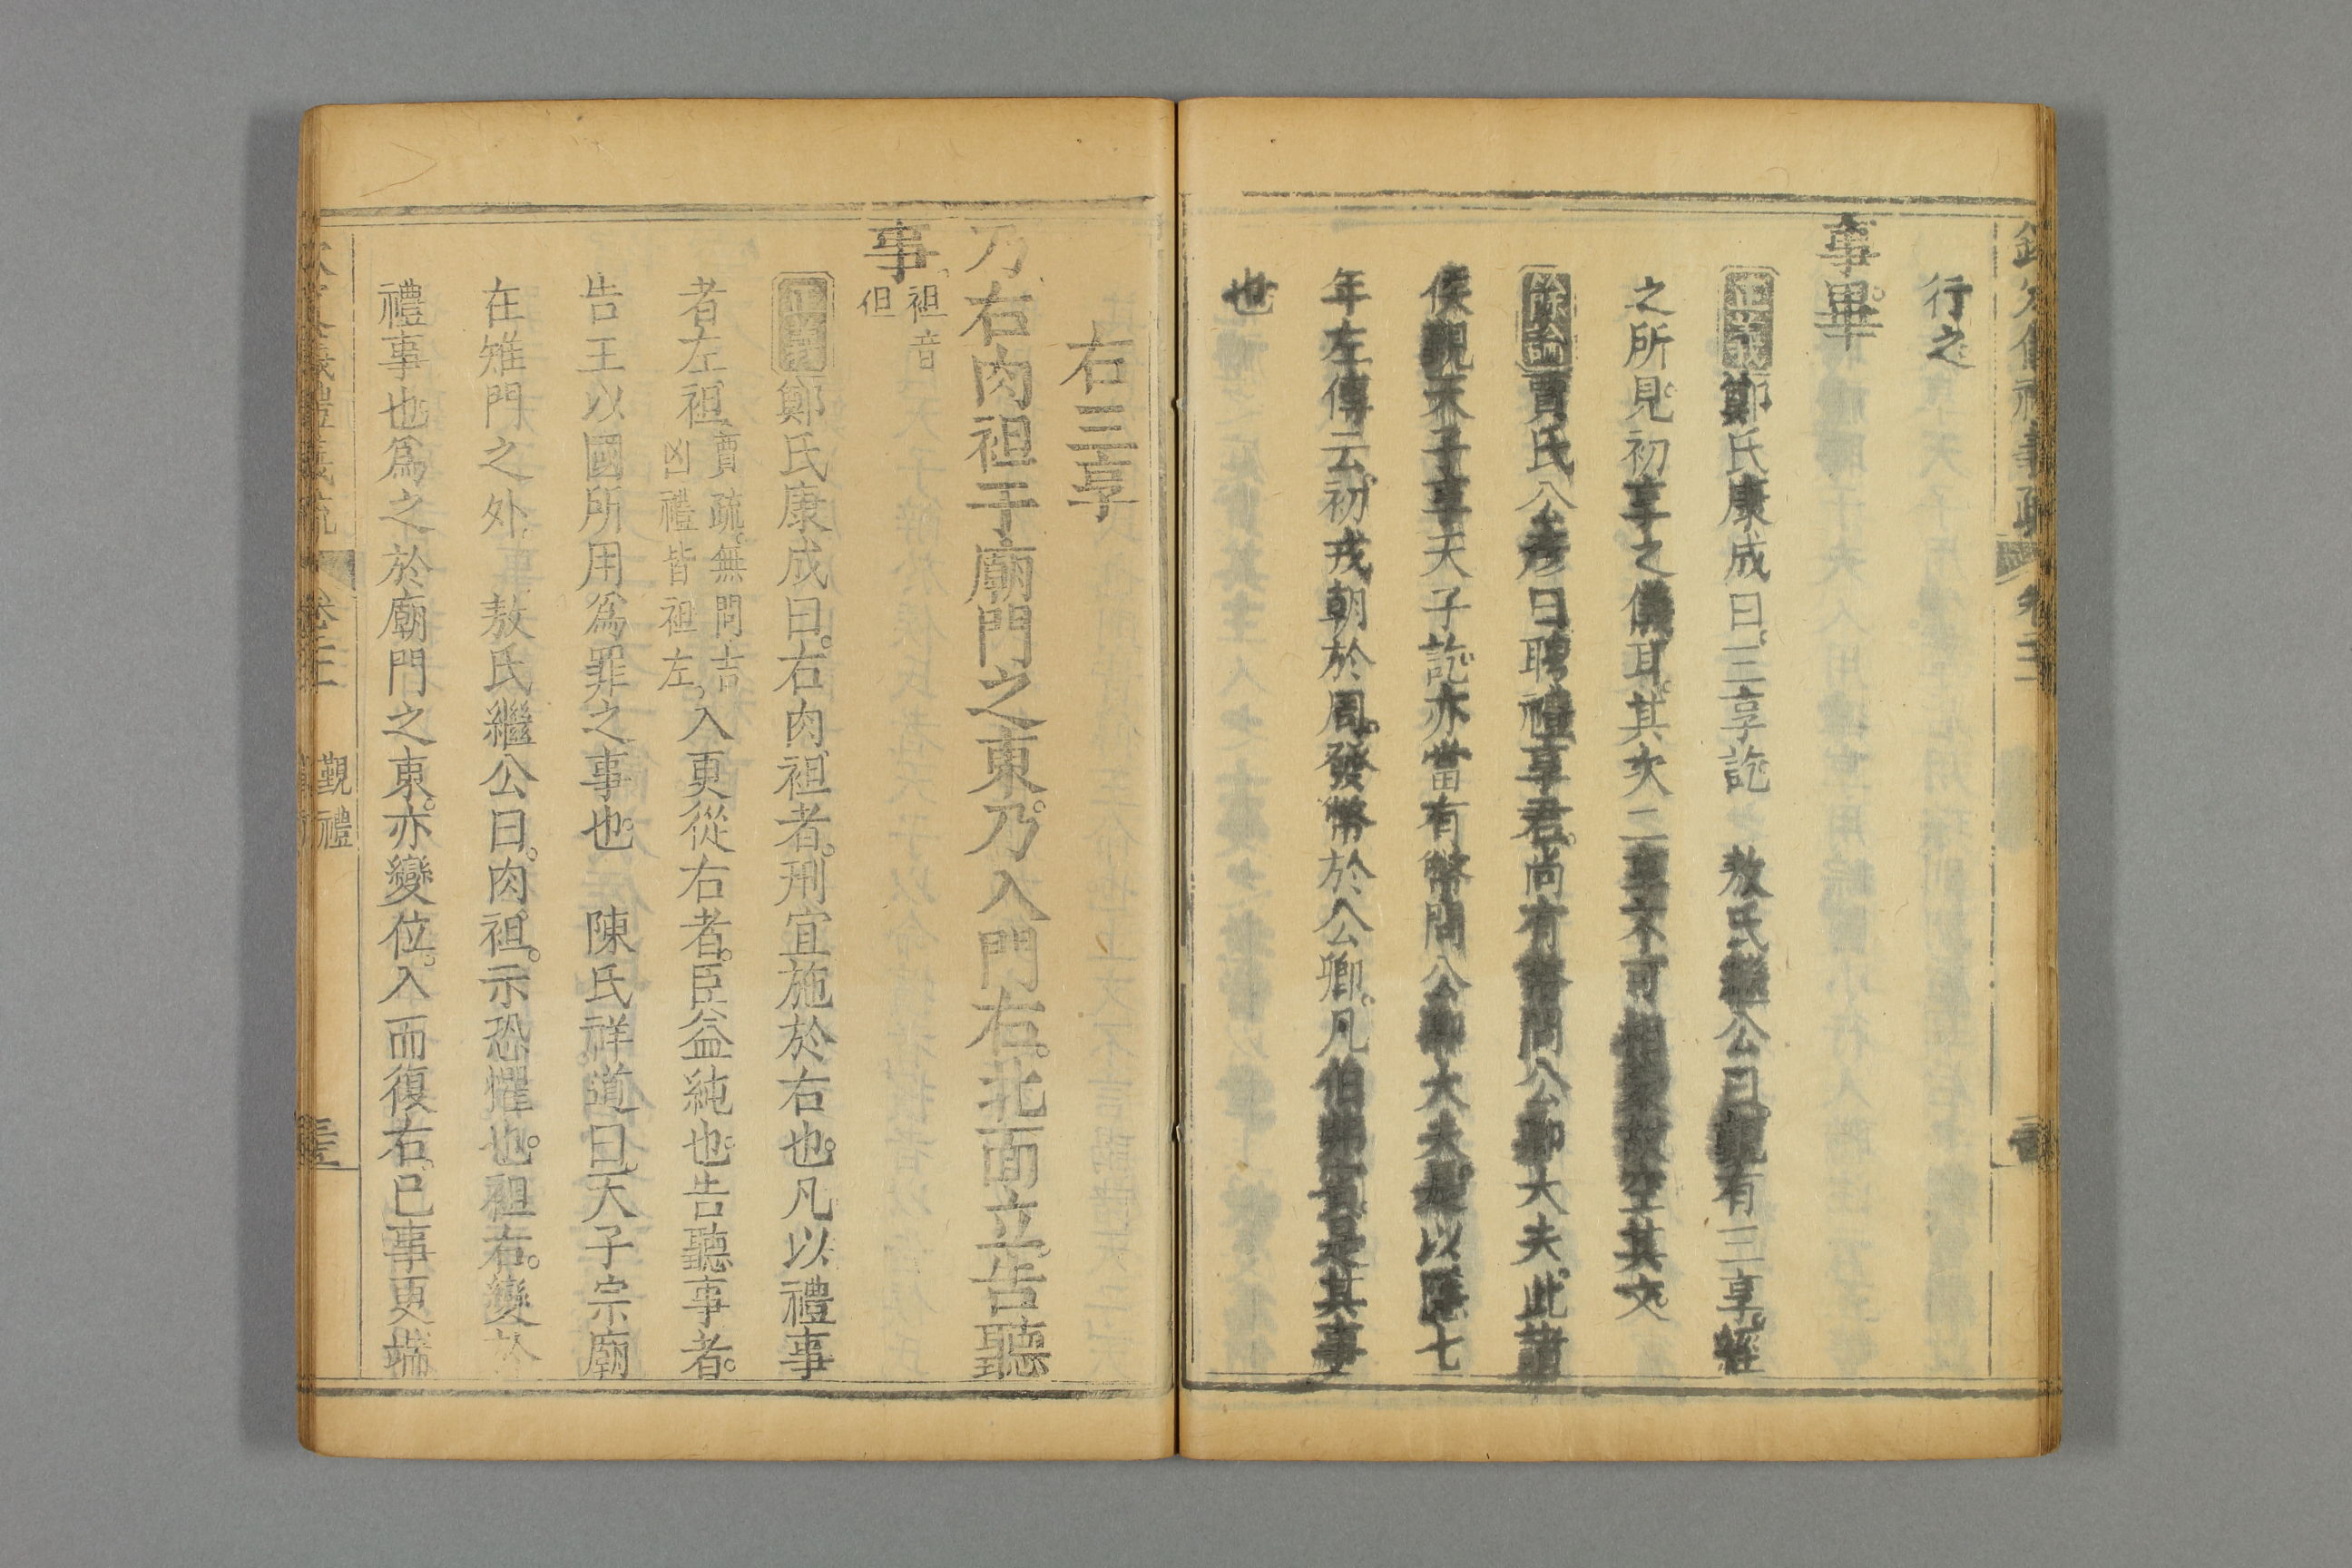 行之
事畢。
正義鄭氏康成曰。三享訖 敖氏繼公曰。覲有三享。經
之所見。初享之儀耳。其次二享不可相蒙。故空其文
餘論賈氏公彥曰聘禮享君。尚有幣問公卿大夫。此諸
侯覲天子享天子訖。亦當有幣問公卿大夫。是以隱七
年左傳云。初戎朝於周。發幣於公卿。凡伯弗賓。是其事
也
右三享
乃右肉袒于廟門之東。乃入門右。北面立。告聽
事。袒音
但
正義鄭氏康成曰。右肉袒者。刑宜施於右也。凡以禮事
者左袒。賈疏。無問吉
凶禮皆袒左。入更從右者。臣益純也。告聽事者。
告王以國所用爲罪之事也。 陳氏祥道曰。天子宗廟
在雉門之外。 敖氏繼公曰。肉袒。示恐懼也。袒右。變於
禮事也爲之於廟門之東。亦變位。入而復右。已事更端
卷二十
覲禮